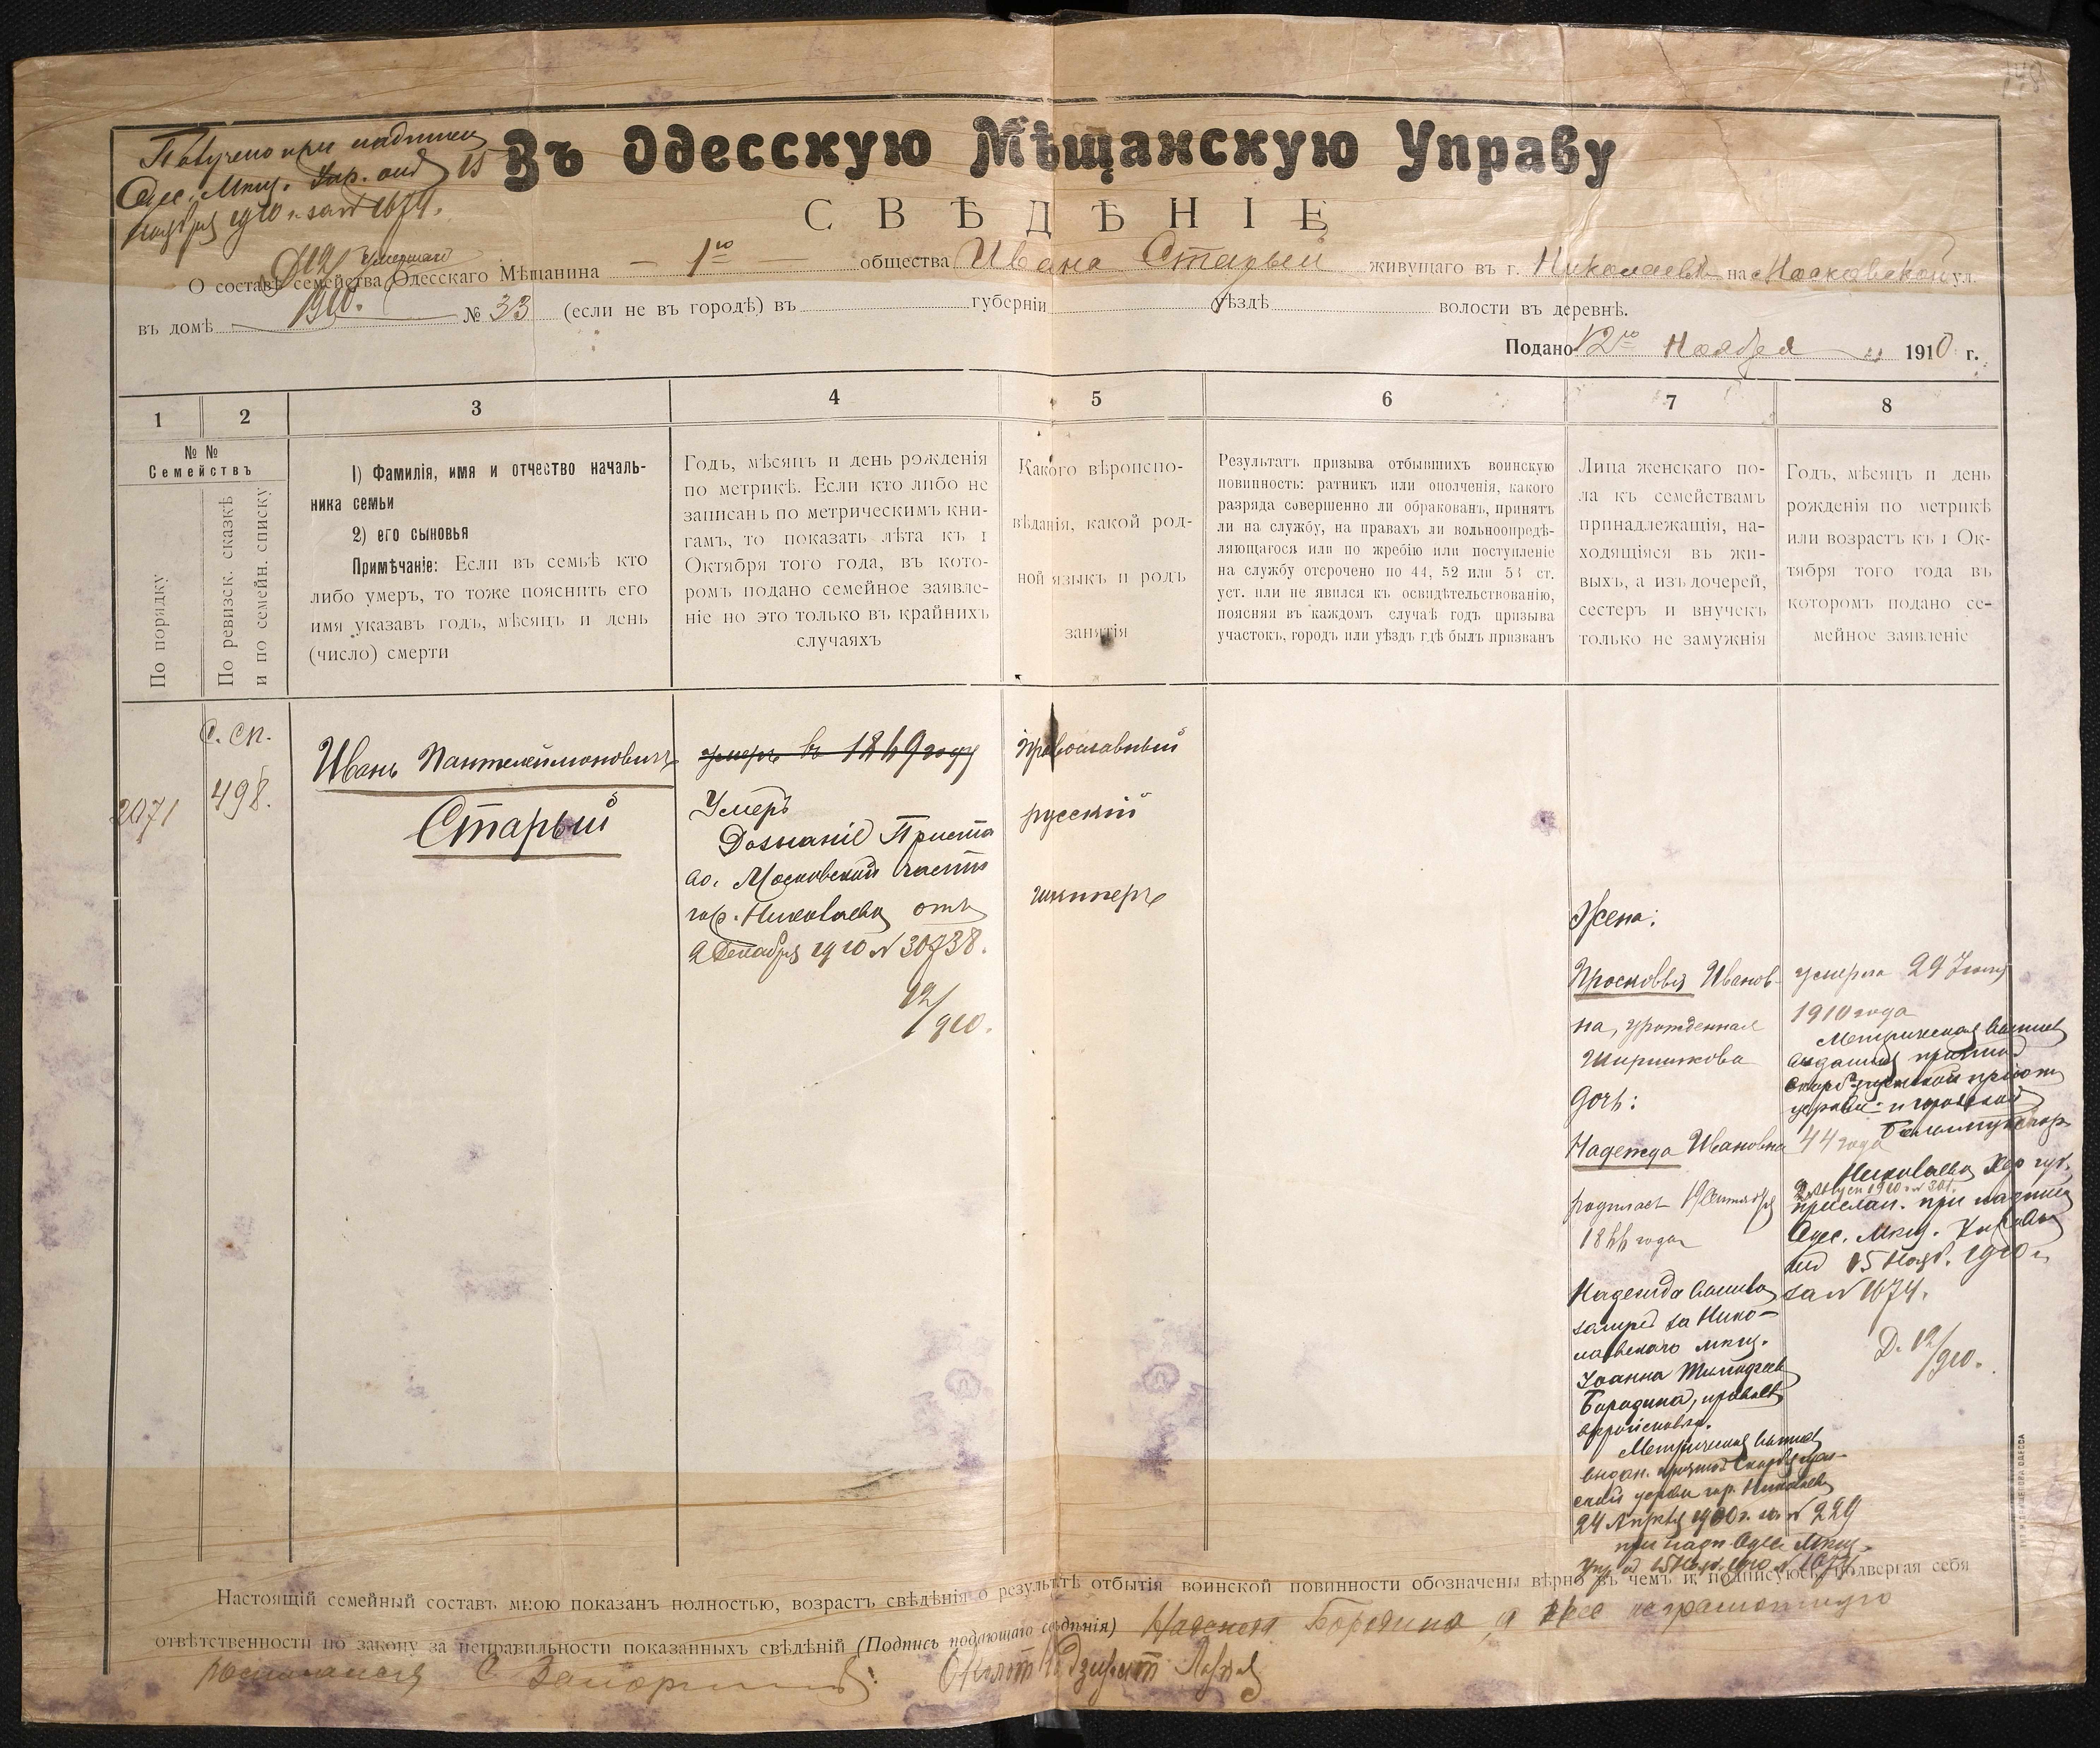 148
Получено при надписи
Одес. Мѣщ. Упр. отъ 15
ноября 1910 г. за № 1674.
Въ Одесскую Мѣщанскую Управу
СВѢДѢНІЕ
умершаго
О составѣ семейства Одесскаго Мѣщанина — 1го — общества Ивана Старый живущаго въ г. Николаевѣ на Московской ул.
въ домѣ № 33 (если не въ городѣ) въ губерніи уѣздѣ волости въ деревнѣ.
Д 12/910.
Подано 12го Ноября 1910 г.
1 2 3 4 5 6 7 8
№ №
Семействъ
По порядку
По ревизск. сказкѣ
и по семейн. списку
1) Фамилія, имя и отчество началь-
ника семьи
2) его сыновья
Примѣчаніе: Если въ семьѣ кто
либо умеръ, то тоже пояснить его
имя указавъ годъ, мѣсяцъ и день
(число) смерти
Годъ, мѣсяцъ и день рожденія
по метрикѣ. Если кто либо не
записанъ по метрическимъ кни-
гамъ, то показать лѣта къ 1
Октября того года, въ кото-
ромъ подано семейное заявле-
ніе но это только въ крайнихъ
случаяхъ
Какого вѣроиспо-
вѣданія, какой род-
ной языкъ и родъ
занятія
Результатъ призыва отбывшихъ воинскую
повинность: ратникъ или ополченія, какого
разряда совершенно ли обракованъ, принятъ
ли на службу, на правахъ ли вольноопредѣ-
ляющагося или по жребію или поступленіе
на службу отсрочено по 44, 52 или 53 ст.
уст. или не явился къ освидѣтельствованію,
поясняя въ каждомъ случаѣ годъ призыва
участокъ, городъ или уѣздъ гдѣ былъ призванъ
Лица женскаго по-
ла къ семействамъ
принадлежащія, на-
ходящіяся въ жи-
выхъ, а изъ дочерей,
сестеръ и внучекъ
только не замужнія
Годъ, мѣсяцъ и день
рожденія по метрикѣ
или возрастъ къ 1 Ок-
тября того года въ
которомъ подано се-
мейное заявленіе
2071
С. сп.
498.
Иванъ Пантелеймоновичъ
Старый
умеръ въ 1869 году
Умеръ
Дознаніе Приста
ва. Московской части
гор. Николаева отъ
2 Декабря 1910 № 30738.
12/910.
Православный
русскій
шкиперъ
Жена:
Просковья Иванов-
на, урожденная
Ширшикова
дочь:
Надежда Ивановна
родилась 19 Сентября
1866 года
Надежда вышла
замужъ за Нико-
лаевскаго мѣщ.
Іоанна Тимофеева
Бородина, правосл.
вѣроисповѣд.
Метрическая выпись
выдан. причтомъ Скорбящен-
ской церкви гор. Николаева
24 Апрѣля 1900 г. за № 229
при надп Одес Мѣщ.
Упр отъ 15 Нояб. 1910 № 1674
умерла 29 Іюня
1910 года
Метрическая выпись
выданная причтомъ
44 года
Николаева Хер губ.
прислан. при надписи
Одес. Мѣщ. Управы
отъ 15 Нояб. 1910 г.
за № 1674.
Д. 12/910.
Настоящій семейный составъ мною показанъ полностью, возрастъ свѣдѣнія о результатѣ отбытія воинской повинности обозначены вѣрно въ чемъ и подписуюсь, подвергая себя
отвѣтственности по закону за неправильности показанныхъ свѣдѣній (Подпись подающаго свѣдѣнія) Надежда Бородина, а за нее неграмотную
росписался С.